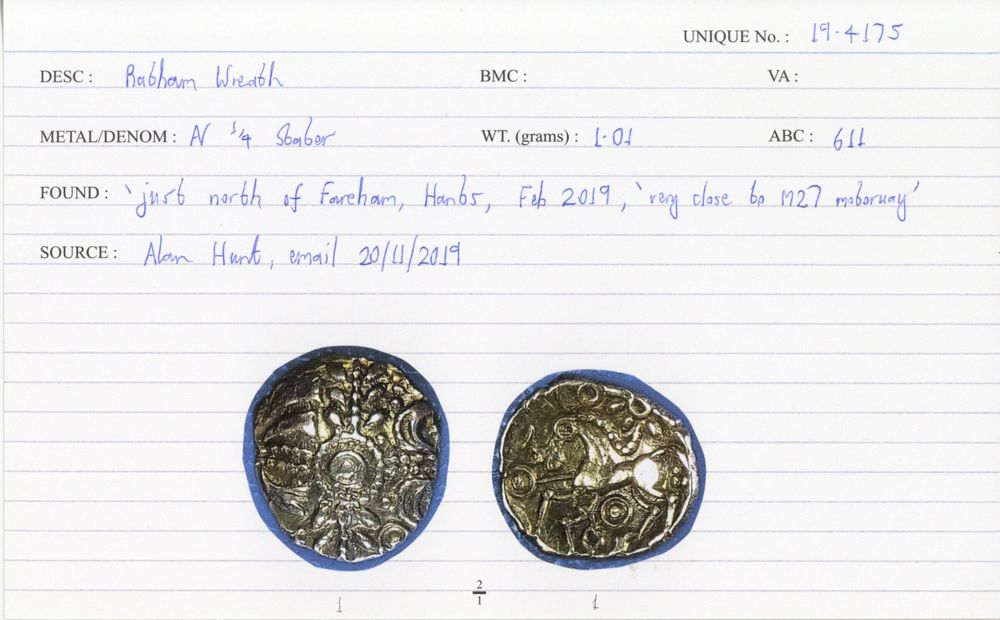 UNIQUE No. : 19.4175
DESC : Rabham Wreath BMC : VA :
METAL/DENOM : AV 1/4 Stater WT. (grams) : 1.01 ABC : 611
FOUND : 'just north of Fareham, Hants, Feb 2019, 'very close to M27 motorway'
SOURCE : Alan Hunt, email 20/11/2019
2/1
1 1